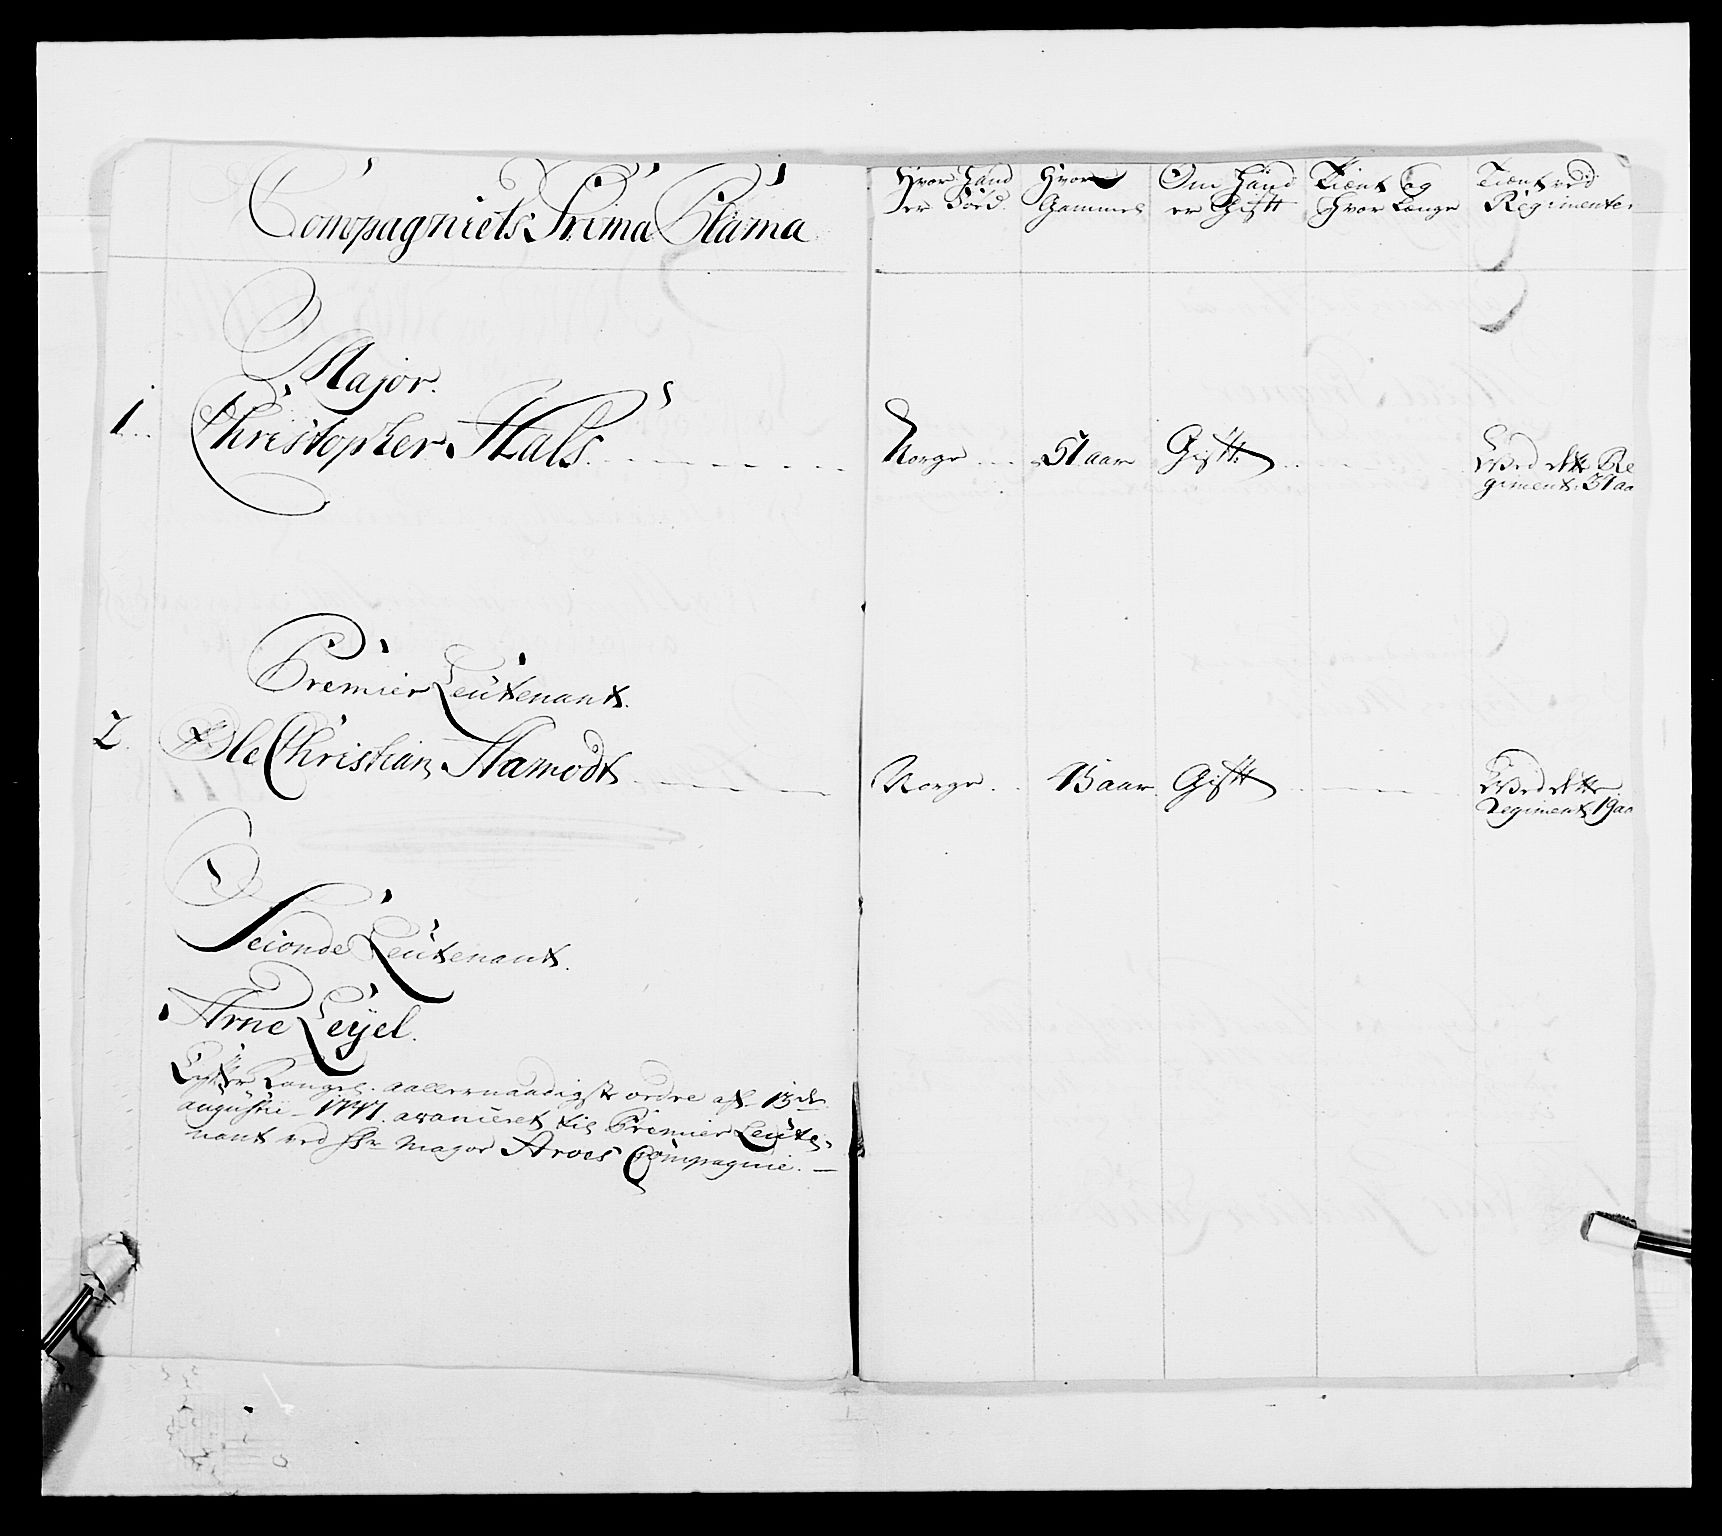 Compagniets Prima Plana
Hvor Hand
er Född
Hvor
Gammel
Om Hand
er Gift
Tient og
Hvor Længe
Tient ved
Regimentet
Major.
1. Christopher Hals.
Norge
51 aar
Gift
Ved dette Re
giment. 31 aa
Premier Leutenant.
2. Ole Christian Hamodt
Norge
45 aar
Gift
Ved dette
Regiment 19 aa
Seconde Leutenant.
Arne Leyel.
Efter Kongel. aallernaadigst ordre af 13de
augustii 1747 avanceret til Premier Leute-
nant ved Hr Major Aroes Compagnie.